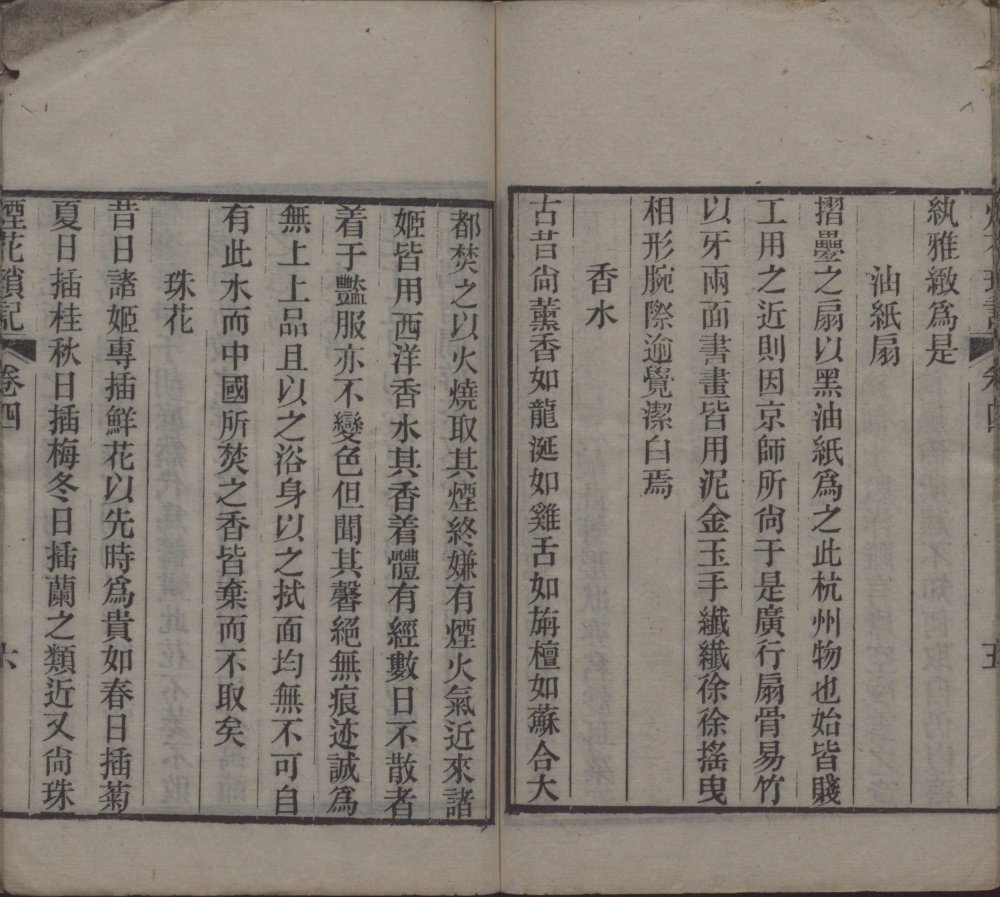 煙花瑣記 卷四 五
紈雅緻爲是
油紙扇
摺疊之扇以黑油紙爲之此杭州物也始皆賤
工用之近則因京師所尚于是廣行扇骨易竹
以牙兩面書畫皆用泥金玉手纖纖徐徐搖曳
相形腕際逾覺潔白焉
香水
古昔尚薰香如龍涎如雞舌如旃檀如蘇合大
都焚之以火燒取其煙終嫌有煙火氣近來諸
姬皆用西洋香水其香着體有經數日不散者
着于豔服亦不變色但聞其馨絕無痕迹誠爲
無上上品且以之浴身以之拭面均無不可自
有此水而中國所焚之香皆棄而不取矣
珠花
昔日諸姬專插鮮花以先時爲貴如春日插菊
夏日插桂秋日插梅冬日插蘭之類近又尚珠
煙花瑣記 卷四 六